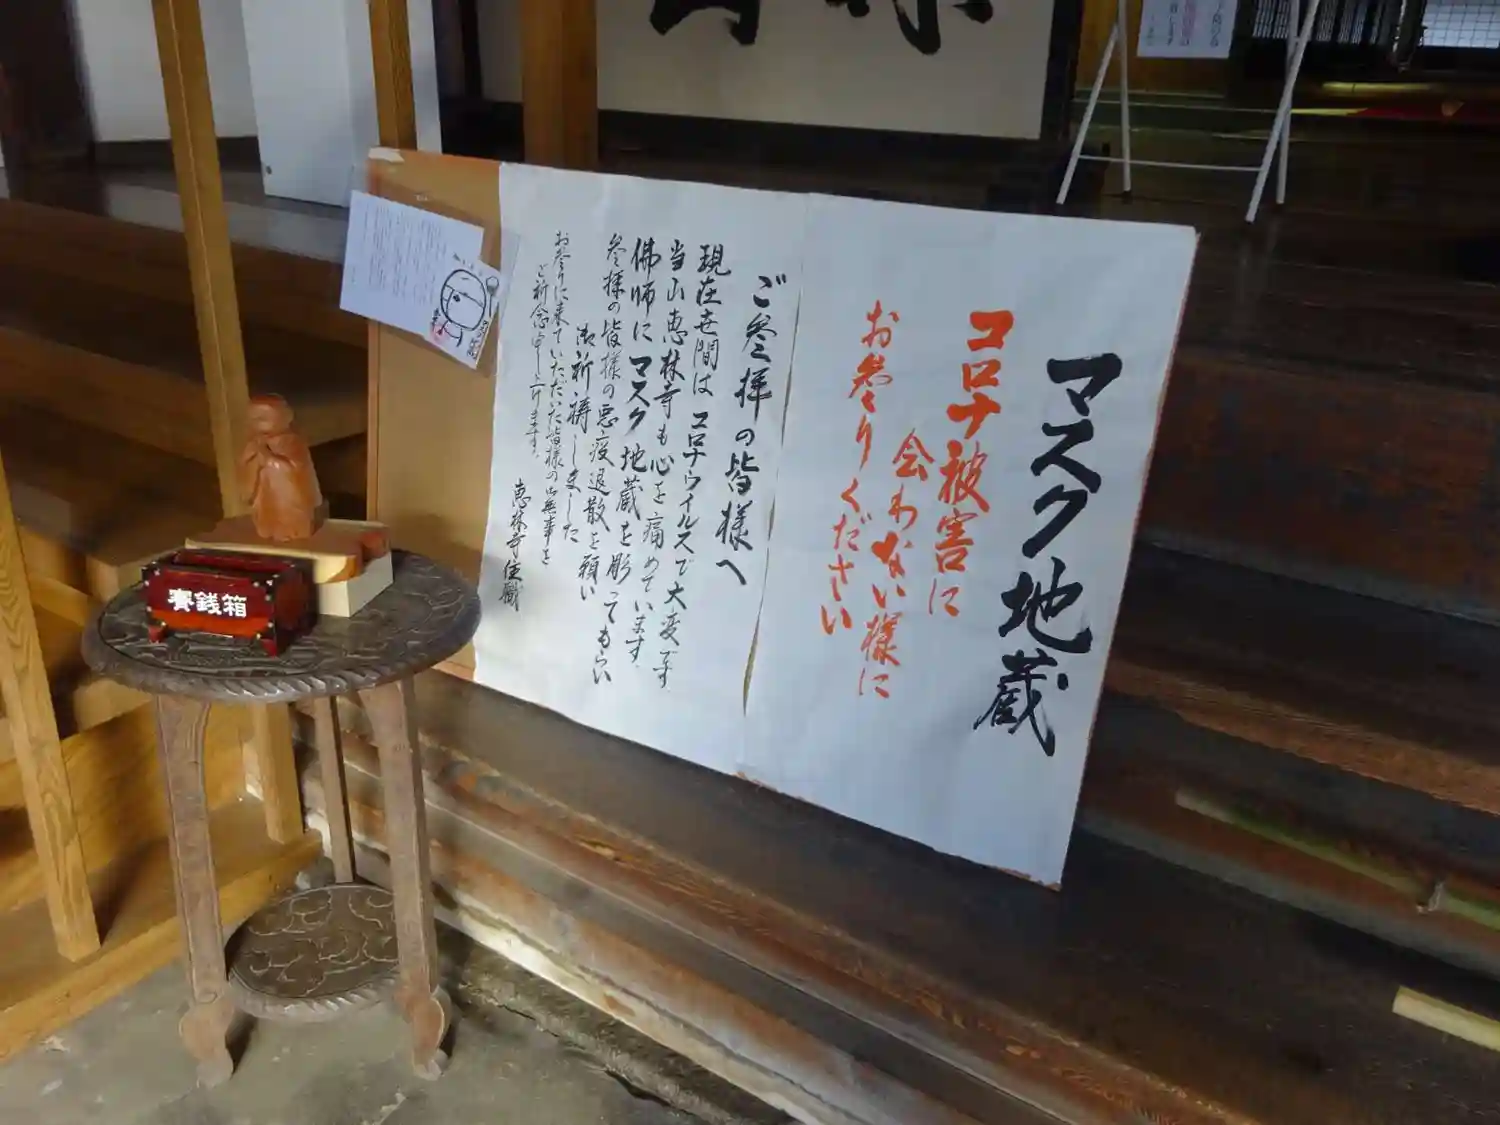 マスク地蔵
コロナ被害に
会わない様に
お参りください
ご参拝の皆様へ
現在世間はコロナウイルスで大変です
当山恵林寺も心を痛めています。
佛師にマスク地蔵を彫ってもらい
参拝の皆様の悪疫退散を願い
御祈祷しました
お参りに来ていただいた皆様の御無事を
ご祈念申し上げます。
恵林寺住職
賽銭箱